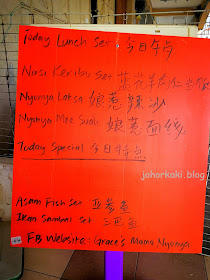 Today Lunch Set 今日午点
Nasi Keribu Set 蓝花
Nyonya Laksa 娘惹辣沙
Nyonya Mee Suah 娘惹面线
Today Special 今日特点
johorkaki.blog
Asam Fish Set 亚参鱼
Ikan Sambal Set 三巴鱼
FB Website: Grace's Mama Nyonya